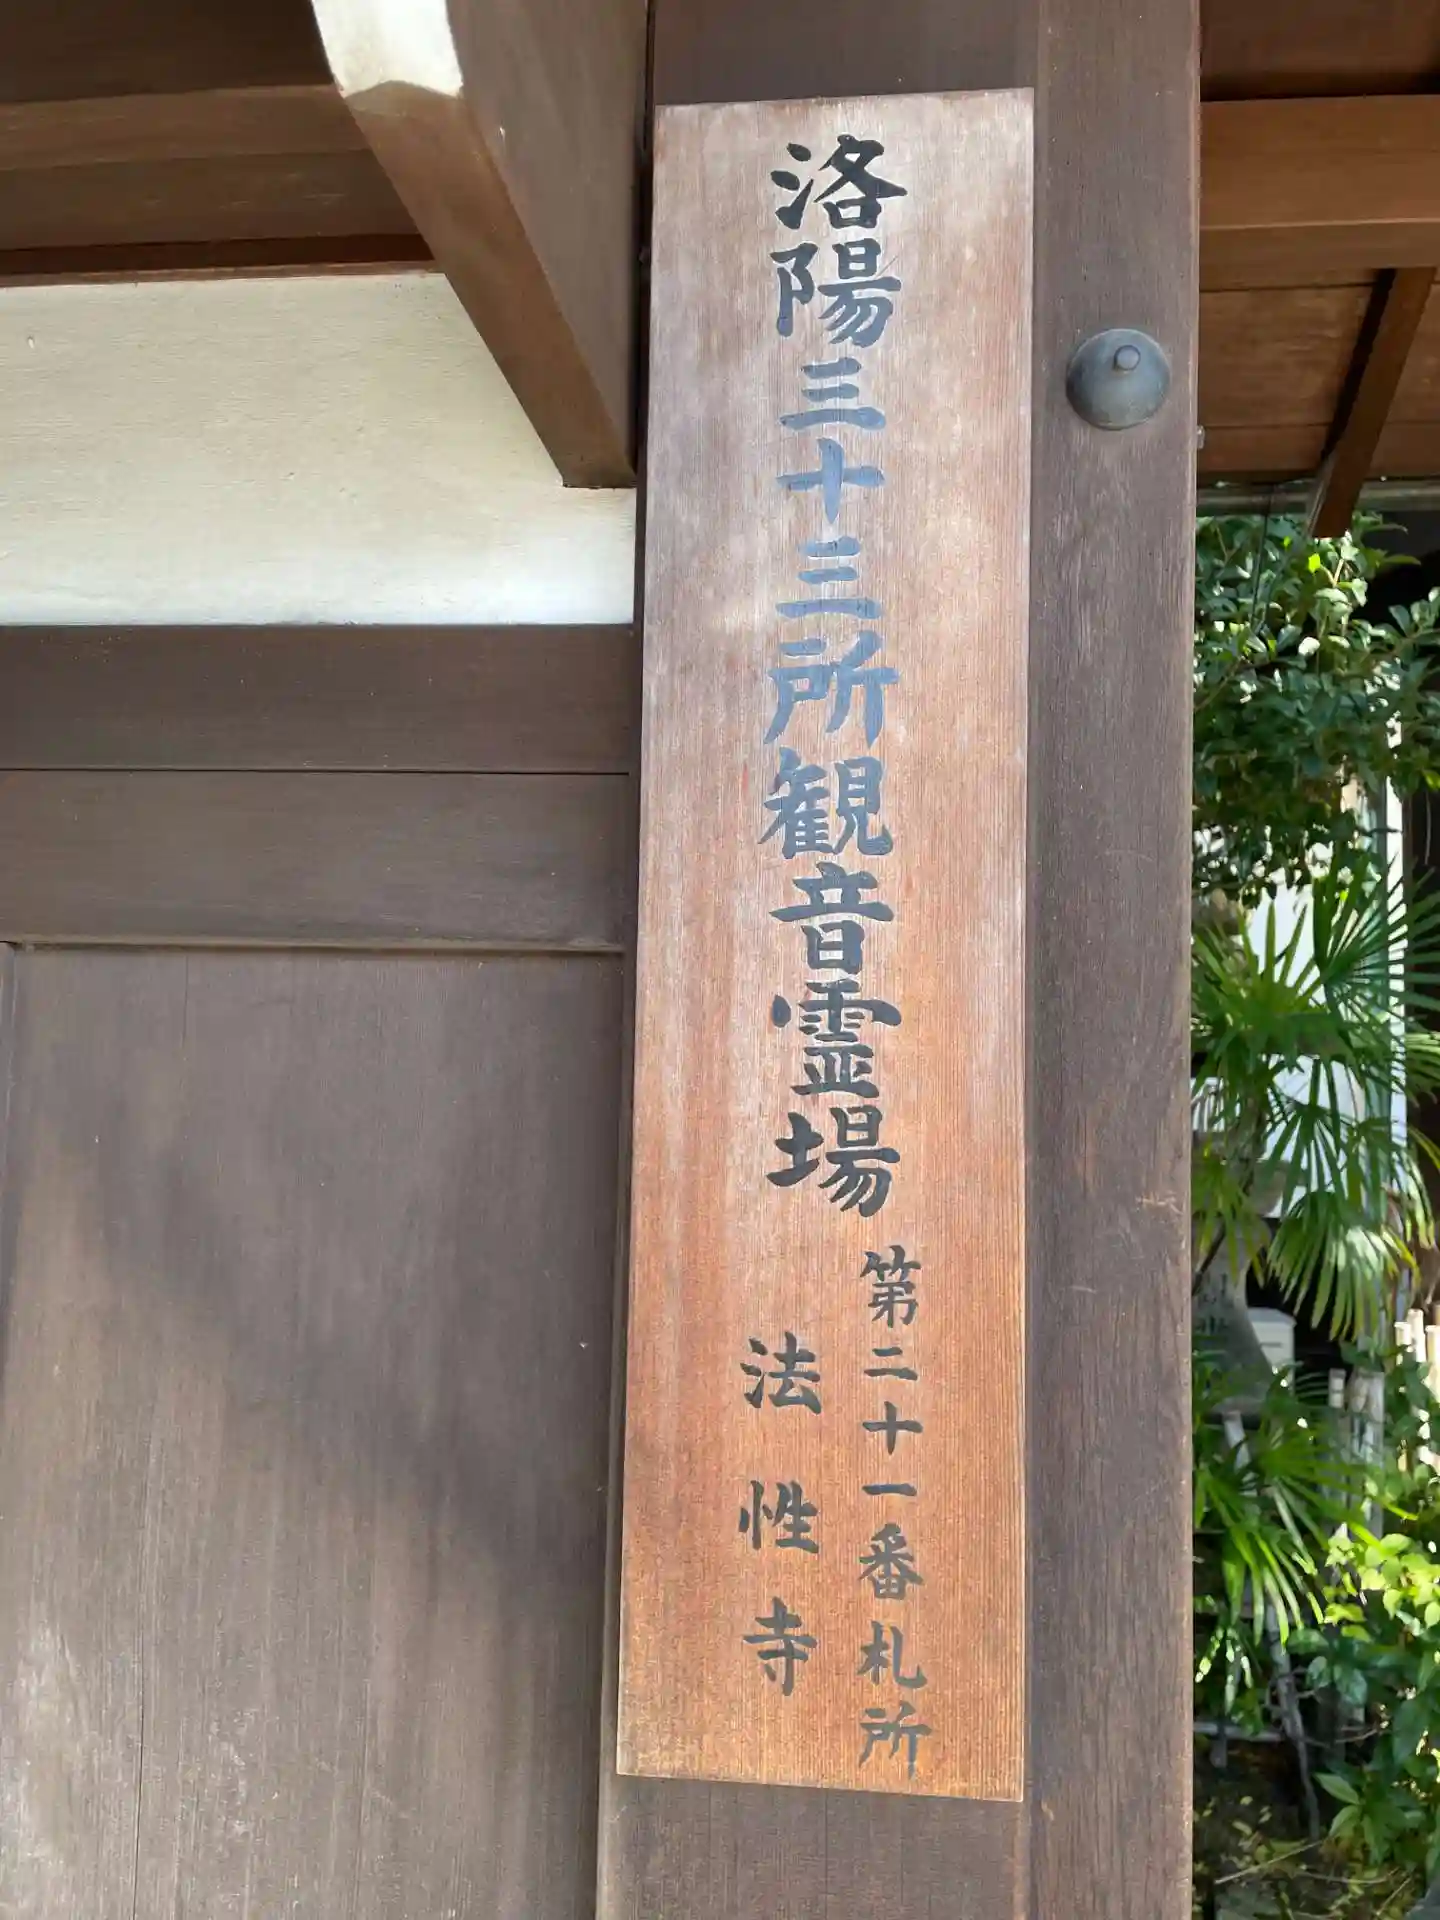 洛陽三十三所観音霊場
第二十一番札所
法性寺